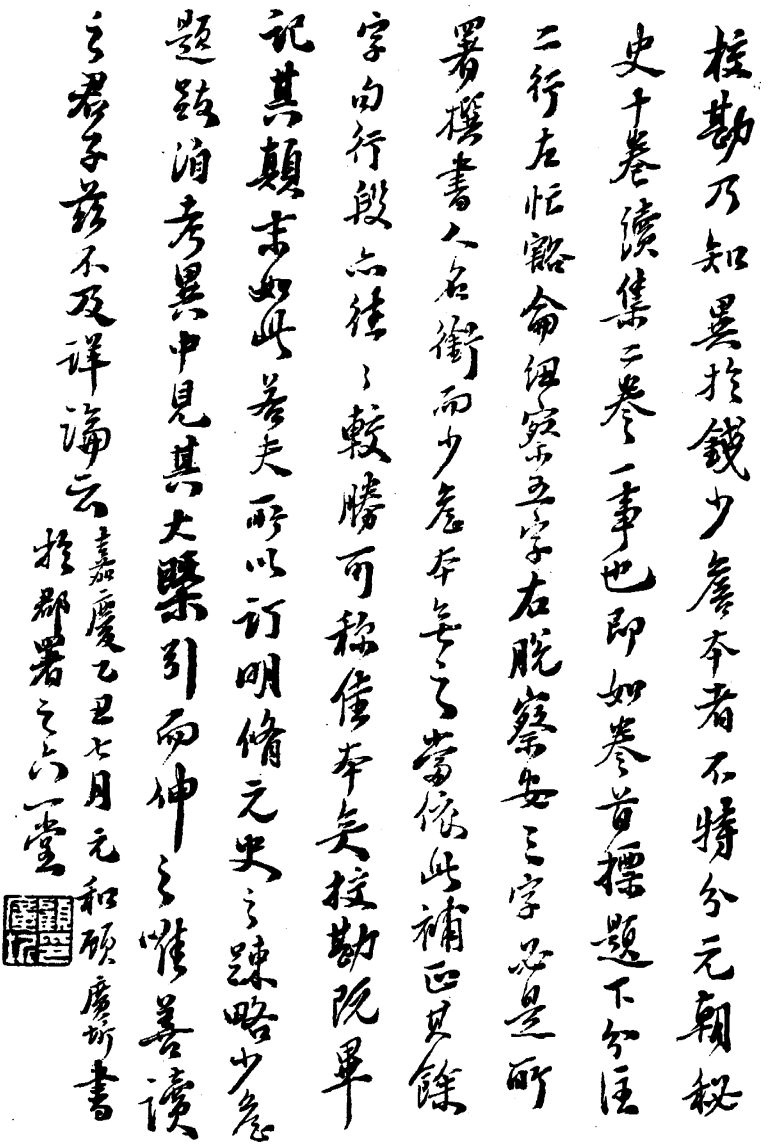 挍勘乃知異於錢少詹本者不特分元朝秘
史十卷續集二卷一事也即如卷首摽題下分注
二行左忙豁侖紐察五字右脫察安三字必是所
署撰書人名銜而少詹本無之當依此補正其餘
字句行段亦往々較勝可称佳本矣挍勘既畢
記其顛末如此若夫所以訂明脩元史之踈略少詹
題跋洎考異中見其大槩引而伸之唯善讀
之君子茲不及詳論云
嘉慶乙丑七月元和顧廣圻書
於郡署之六一堂
顧廣圻印